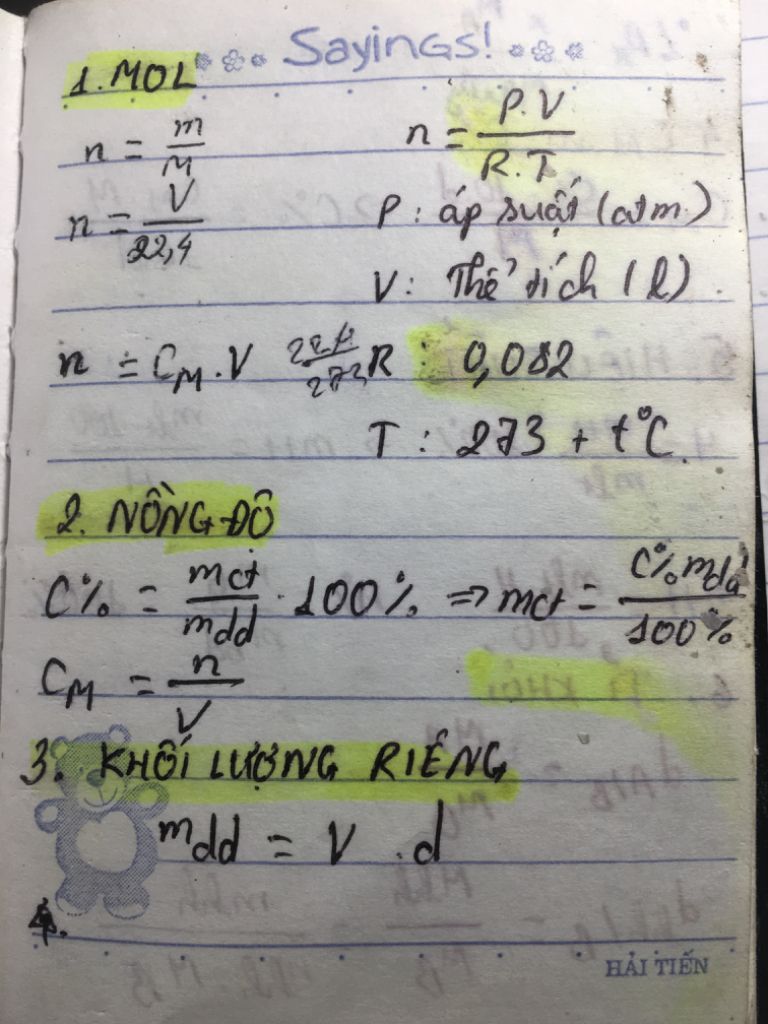 Sayings!
1. MOL
n = m/M
n = P.V/R.T
n = V/22,4
P : áp suất (atm)
V : Thể tích (l)
n = CM.V 22,4/273 R : 0,082
T : 273 + t°C
2. NỒNG ĐỘ
C% = mct/mdd . 100% => mct = C%.mdd/100%
CM = n/V
3. KHỐI LƯỢNG RIÊNG
mdd = V . d
4.
HẢI TIẾN